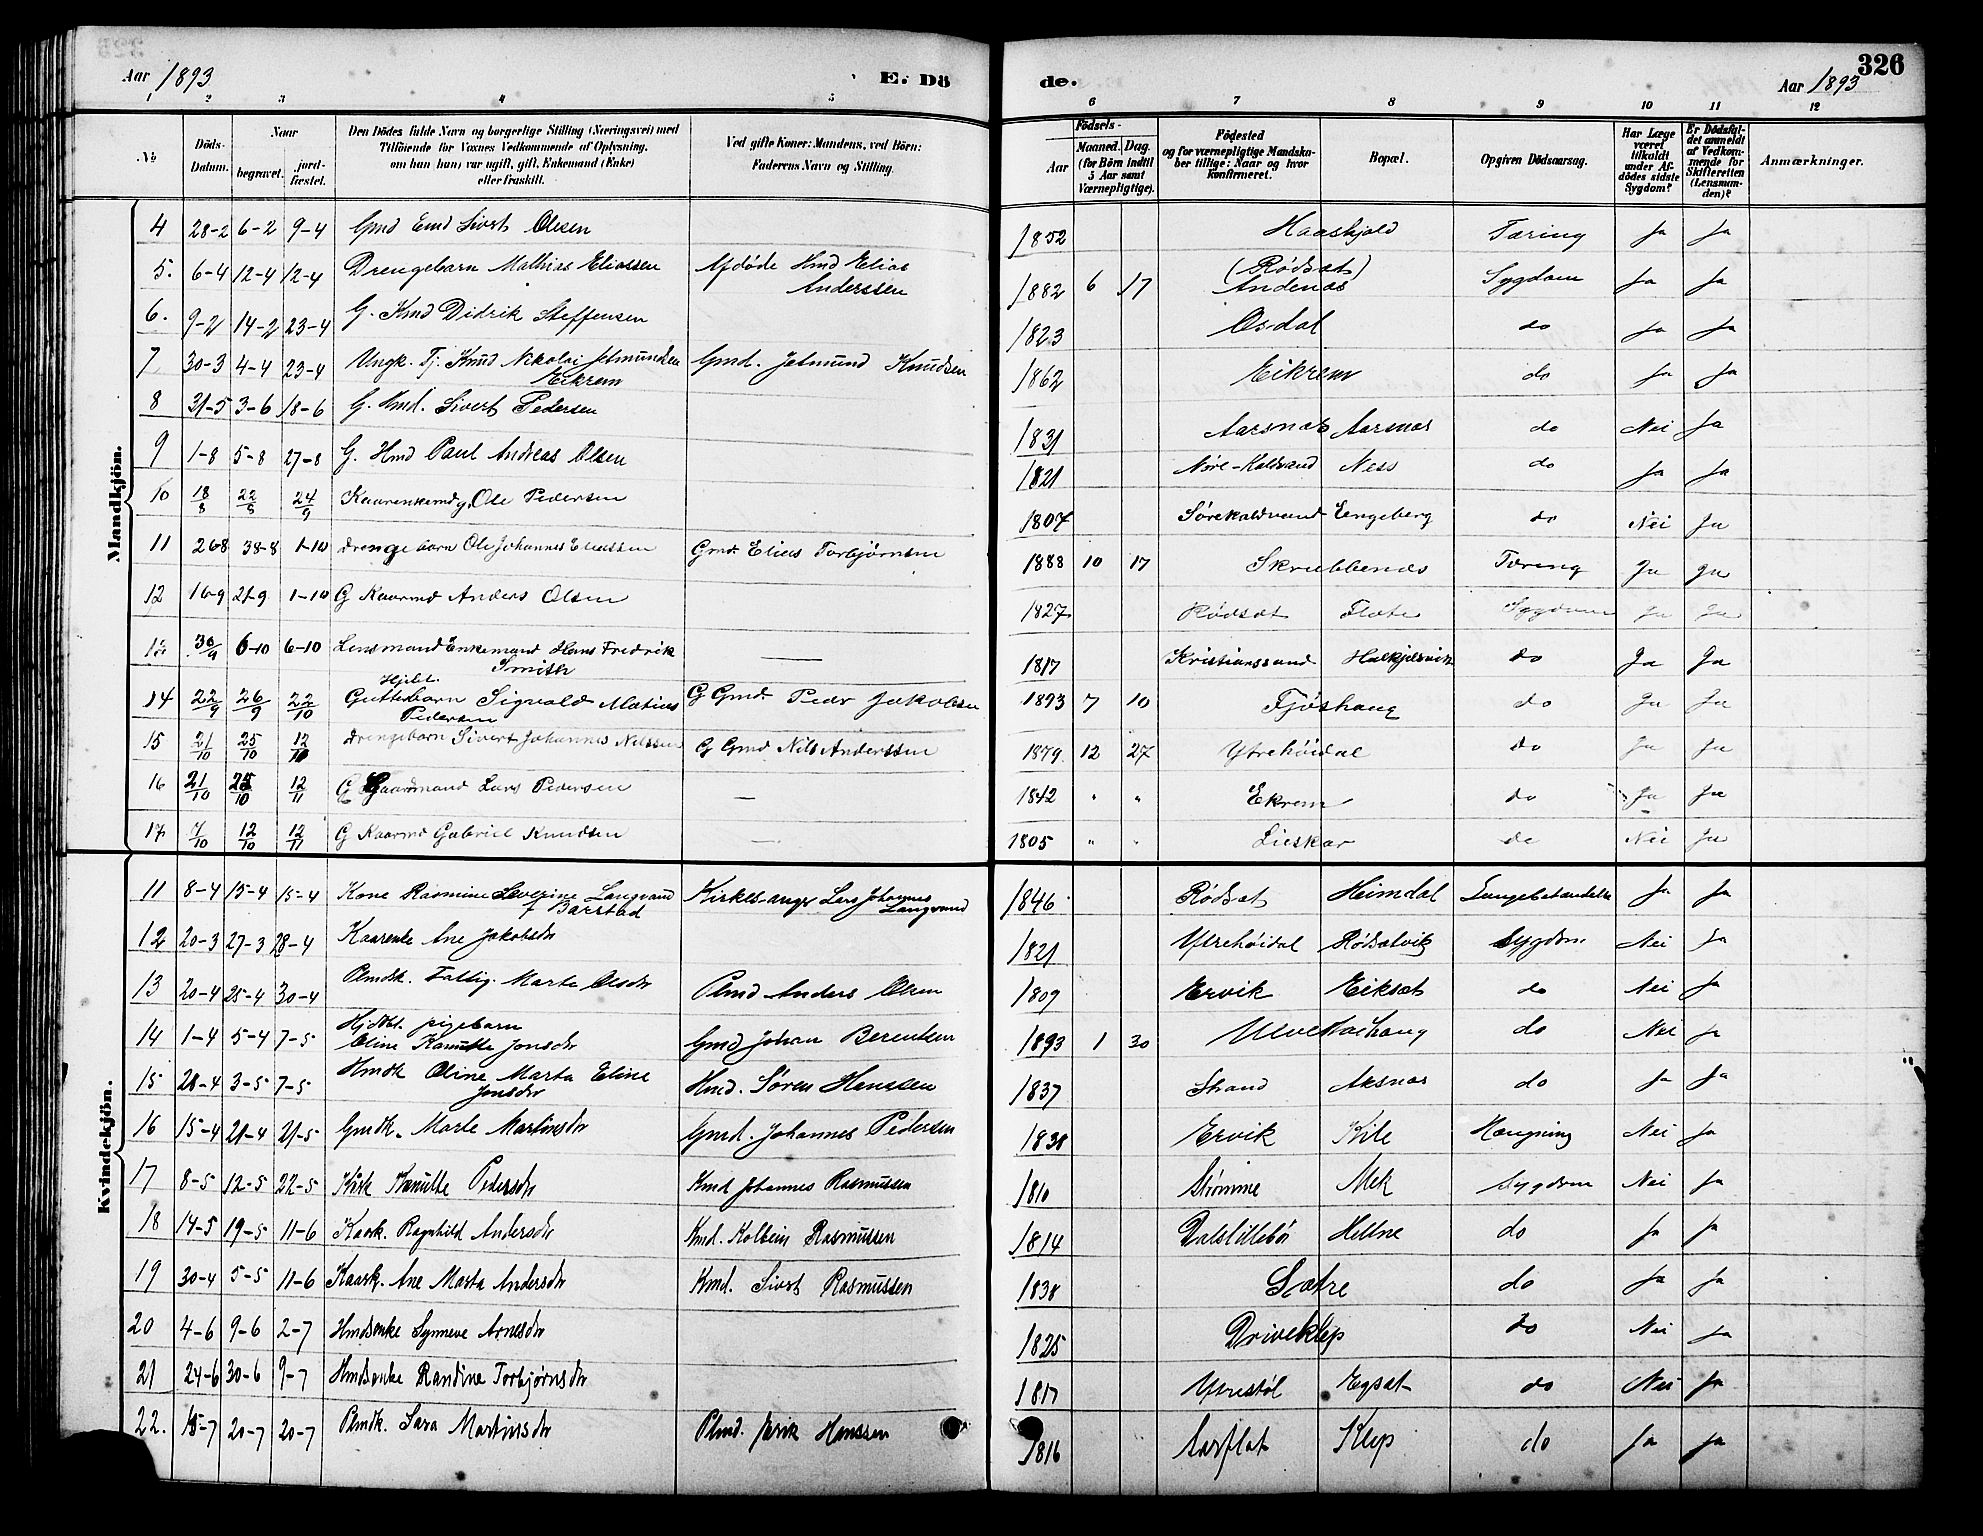 326
Aar 1893 E. Dö de. Aar 1893
1 2 3 4 5 6 7 8 9 10 11 12
No Döds-Datum. Naar begravet. jord-fæstet. Den Dödes fulde Navn og borgerlige Stilling (Næringsvei) med Tilföiende for Voxnes Vedkommende af Oplysning, om han (hun) var ugift, gift, Enkemand (Enke) eller fraskilt. Ved gifte Koner: Mandens, ved Börn: Faderens Navn og Stilling. Födsels- Aar Maaned. Dag. (for Börn indtil 5 Aar samt Værnepligtige). Födested og for værnepligtige Mandska-ber tillige: Naar og hvor Konfirmeret. Bopæl. Opgiven Dödsaarsag. Har Læge været tilkaldt under Af-dödes sidste Sygdom? Er Dödsfal-det anmeldt af Vedkom-mende for Skifteretten (Lensman-den)? Anmærkninger.
Mandkjön.
4 28-2 6-2 9-4 Gmd Emd Sivert Olsen 1852 Haaskjold Tæring Ja Ja
5. 6-4 12-4 12-4 Drengebarn Mathias Eliassen Afdöde Hmd Elias Anderssen 1882 6 17 (Rødsæt) Andenæs Sygdom Ja Ja
6. 9-2 14-2 23-4 G. Kmd Didrik Steffensen 1823 Osdal do Ja Ja
7 30-3 4-4 23-4 Ungk. Tj. Knud Nikolai Jetmundsen Eikrem Gmd. Jetmund Knudsen 1862 Eikrem do Ja Ja
8 31-5 3-6 18-6 G. Hmd. Sivert Pedersen 1831 Aarsnæs Aarsnæs do Nei Ja
9 1-8 5-8 27-8 G. Hmd Paul Andreas Olsen 1821 Nore-Kaldvand Ness do Ja Ja
10 18/8 22/8 24/9 Kaarenkemdg. Ole Pedersen 1807 Sørekaldvand Engeberg do Nei Ja
11 26-8 38-8 1-10 drengebarn Ole Johannes Eliassen Gmd. Elias Torbjørnsen 1888 10 17 Skrubbenæs Tæring Ja Ja
12 16-9 21-9 1-10 G Kaarmd Anders Olsen 1827 Rødsæt Flote Sygdom Ja Ja
13 30/9 6-10 6-10 Lensmand Enkemand Hans Fredrik Smith — 1817 Kristianssund Halkjelsvik do Ja Ja
14 22/9 26/9 22/10 Hjdbt. Guttebarn Sigvald Matius Pedersen G Gmd. Peder Jakobsen 1893 7 10 Fjøshaug do Ja Ja
15 21/10 25/10 12/10 drengebarn Sivert Johannes Nilssen G Gmd Nils Anderssen 1879 12 27 Ytrehöidal do Ja Ja
16 21/10 25/10 12/11 G Gaardmand Lars Pedersen — 1842 " " Ekrem do Ja Ja
17 7/10 12/10 12/11 G Kaarmd Gabriel Knudsen — 1805 " " Lieskar do Nei Ja
Kvindekjön.
11 8-4 15-4 15-4 Kone Rasmine Severine Langvand f Barstad Kirkesanger Lars Johannes Langvand 1846 Rødsæt Heimdal Lungebetændelse Ja Ja
12 20-3 27-3 28-4 Kaarenke Ane Jakobsdr 1821 Ytrehöidal Rødsætvik Sygdom Nei Ja
13 20-4 25-4 30-4 Plmdk. Fattig. Marte Olsdr Plmd Anders Olsen 1809 Ervik Eiksæt do Nei Ja
14 1-4 5-4 7-5 Hjdbt. pigebarn Oline Kanutte Jonsdr Gmd Johan Berentsen 1893 1 30 do Nei Ja
15 28-4 3-5 7-5 Hmdk Oline Marta Eline Jensdr Hmd. Søren Hanssen 1837 Strand Aksnæs do Ja Ja
16 15-4 21-4 21-5 Gmdk. Marte Martinsdr Gmd. Johannes Pedersen 1838 Ervik Kile Hængning Nei Ja
17 8-5 12-5 22-5 Kårk Kanutte Pedersdr Kmd Johannes Rasmussen 1810 Strømme Mek Sygdom Nei Ja
18 14-5 19-5 11-6 Kaark. Ragnhild Andersdr Kmd. Kolbein Rasmussen 1814 Dalslillebø Hellne do Ja Ja
19 30-4 5-5 11-6 Kaark. Ane Marta Andersdr Kmd. Sivert Rasmussen 1838 Sætre do Ja Ja
20 4-6 9-6 2-7 Hmdsenke Synneve Arnesdr 1825 Driveklep do Nei Ja
21 24-6 30-6 9-7 Hmdsenke Randine Torbjørnsdr 1817 Ytrestøl Egsæt do Nei Ja
22. 15-7 20-7 20-7 Plmdk. Sara Martinsdr Plmd. Jørik Hanssen 1816 Aarflot Klep do Ja Ja